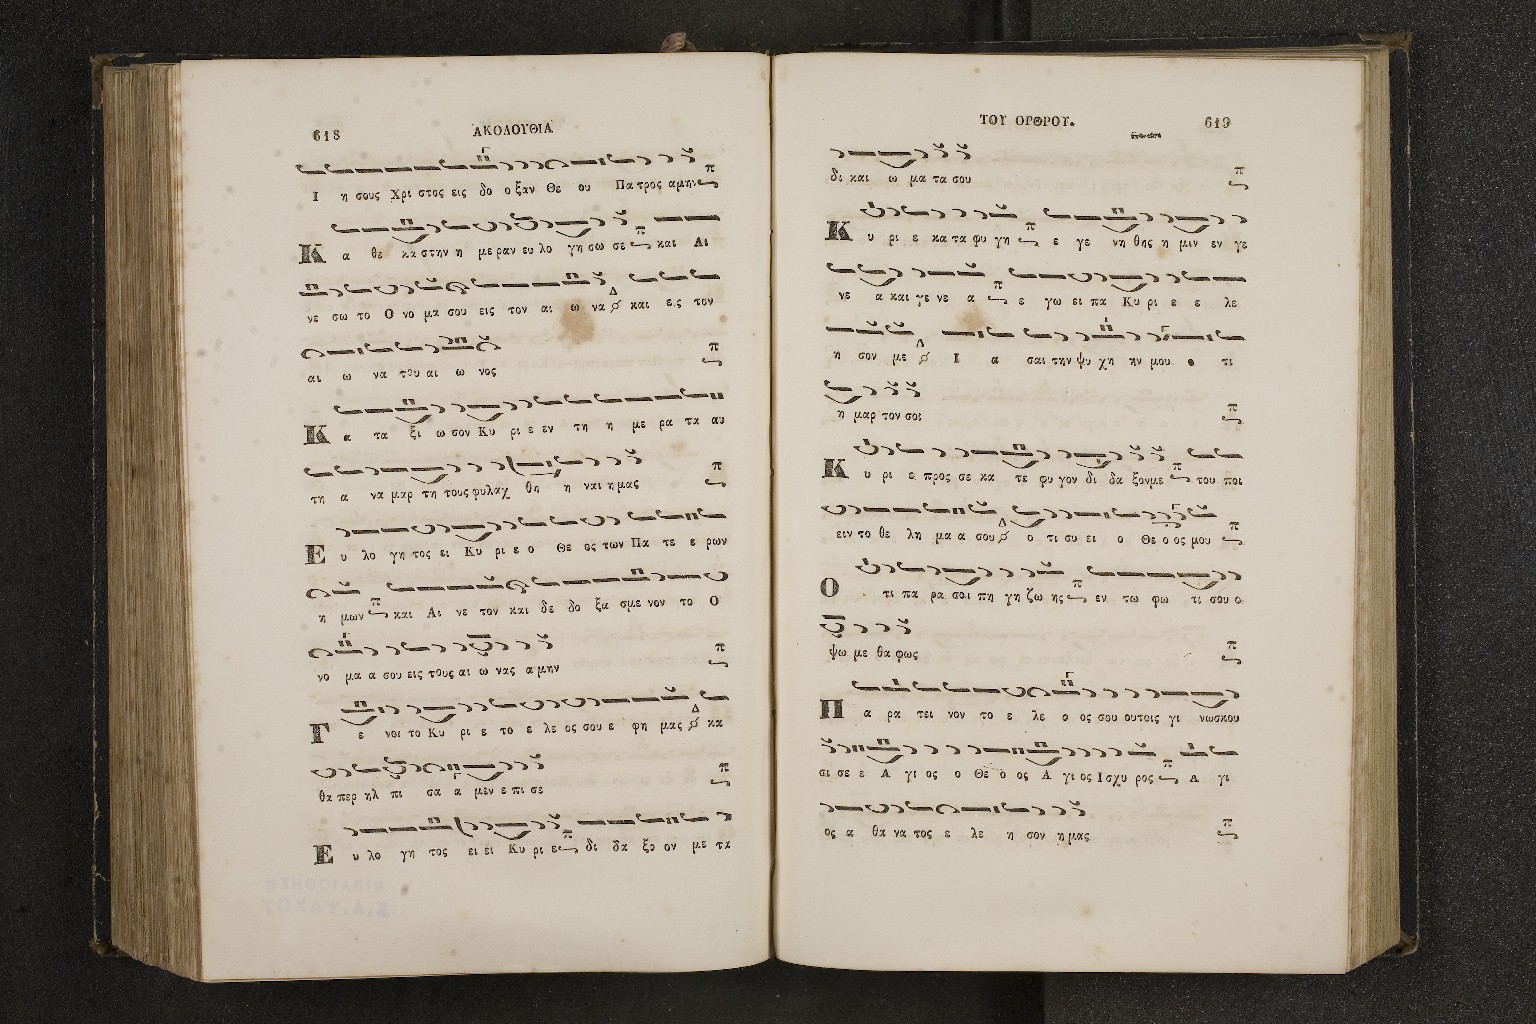 618
ΑΚΟΛΟΥΘΙΑ
Ι η σους Χρι στος εις δο ο ξαν Θε ου Πα τρος αμην
Κ α θε κα στην η με ραν ευ λο γη σω σε και Αι
νε σω το Ο νο μα σου εις τον αι ω να και εις τον
αι ω να του αι ω νος
Κ α τα ξι ω σον Κυ ρι ε εν τη η με ρα τα αυ
τη α να μαρ τη τους φυλαχ θη η ναι ημας
Ε υ λο γη τος ει Κυ ρι ε ο Θε ος των Πα τε ε ρων
η μων και Αι νε τον και δε δο ξα σμε νον το Ο
νο μα α σου εις τους αι ω νας α μην
Γ ε νοι το Κυ ρι ε το ε λε ος σου ε φη μας κα
θα περ ηλ πι σα α μεν ε πι σε
Ε υ λο γη τος ει ει Κυ ρι ε δι δα ξο ον με τα
ΤΟΥ ΟΡΘΡΟΥ.
619
δι και ω μα τα σου
Κ υ ρι ε κα τα φυ γη ε γε νη θης η μιν εν γε
νε α και γε νε α ε γω ει πα Κυ ρι ε ε λε
η σον με Ι α σαι την ψυ χη ην μου ο τι
η μαρ τον σοι
Κ υ ρι ε προς σε κα τε φυ γον δι δα ξονμε του ποι
ειν το θε λη μα α σου ο τι συ ει ο Θε ο ος μου
Ο τι πα ρα σοι πη γη ζω ης εν τω φω τι σου ο
ψω με θα φως
Π α ρα τει νον το ε λε ο ος σου ουτοις γι νωσκου
σι σε ε Α γι ος ο Θε ο ος Α γι ος Ισχυ ρος Α γι
ος α θα να τος ε λε η σον ημας